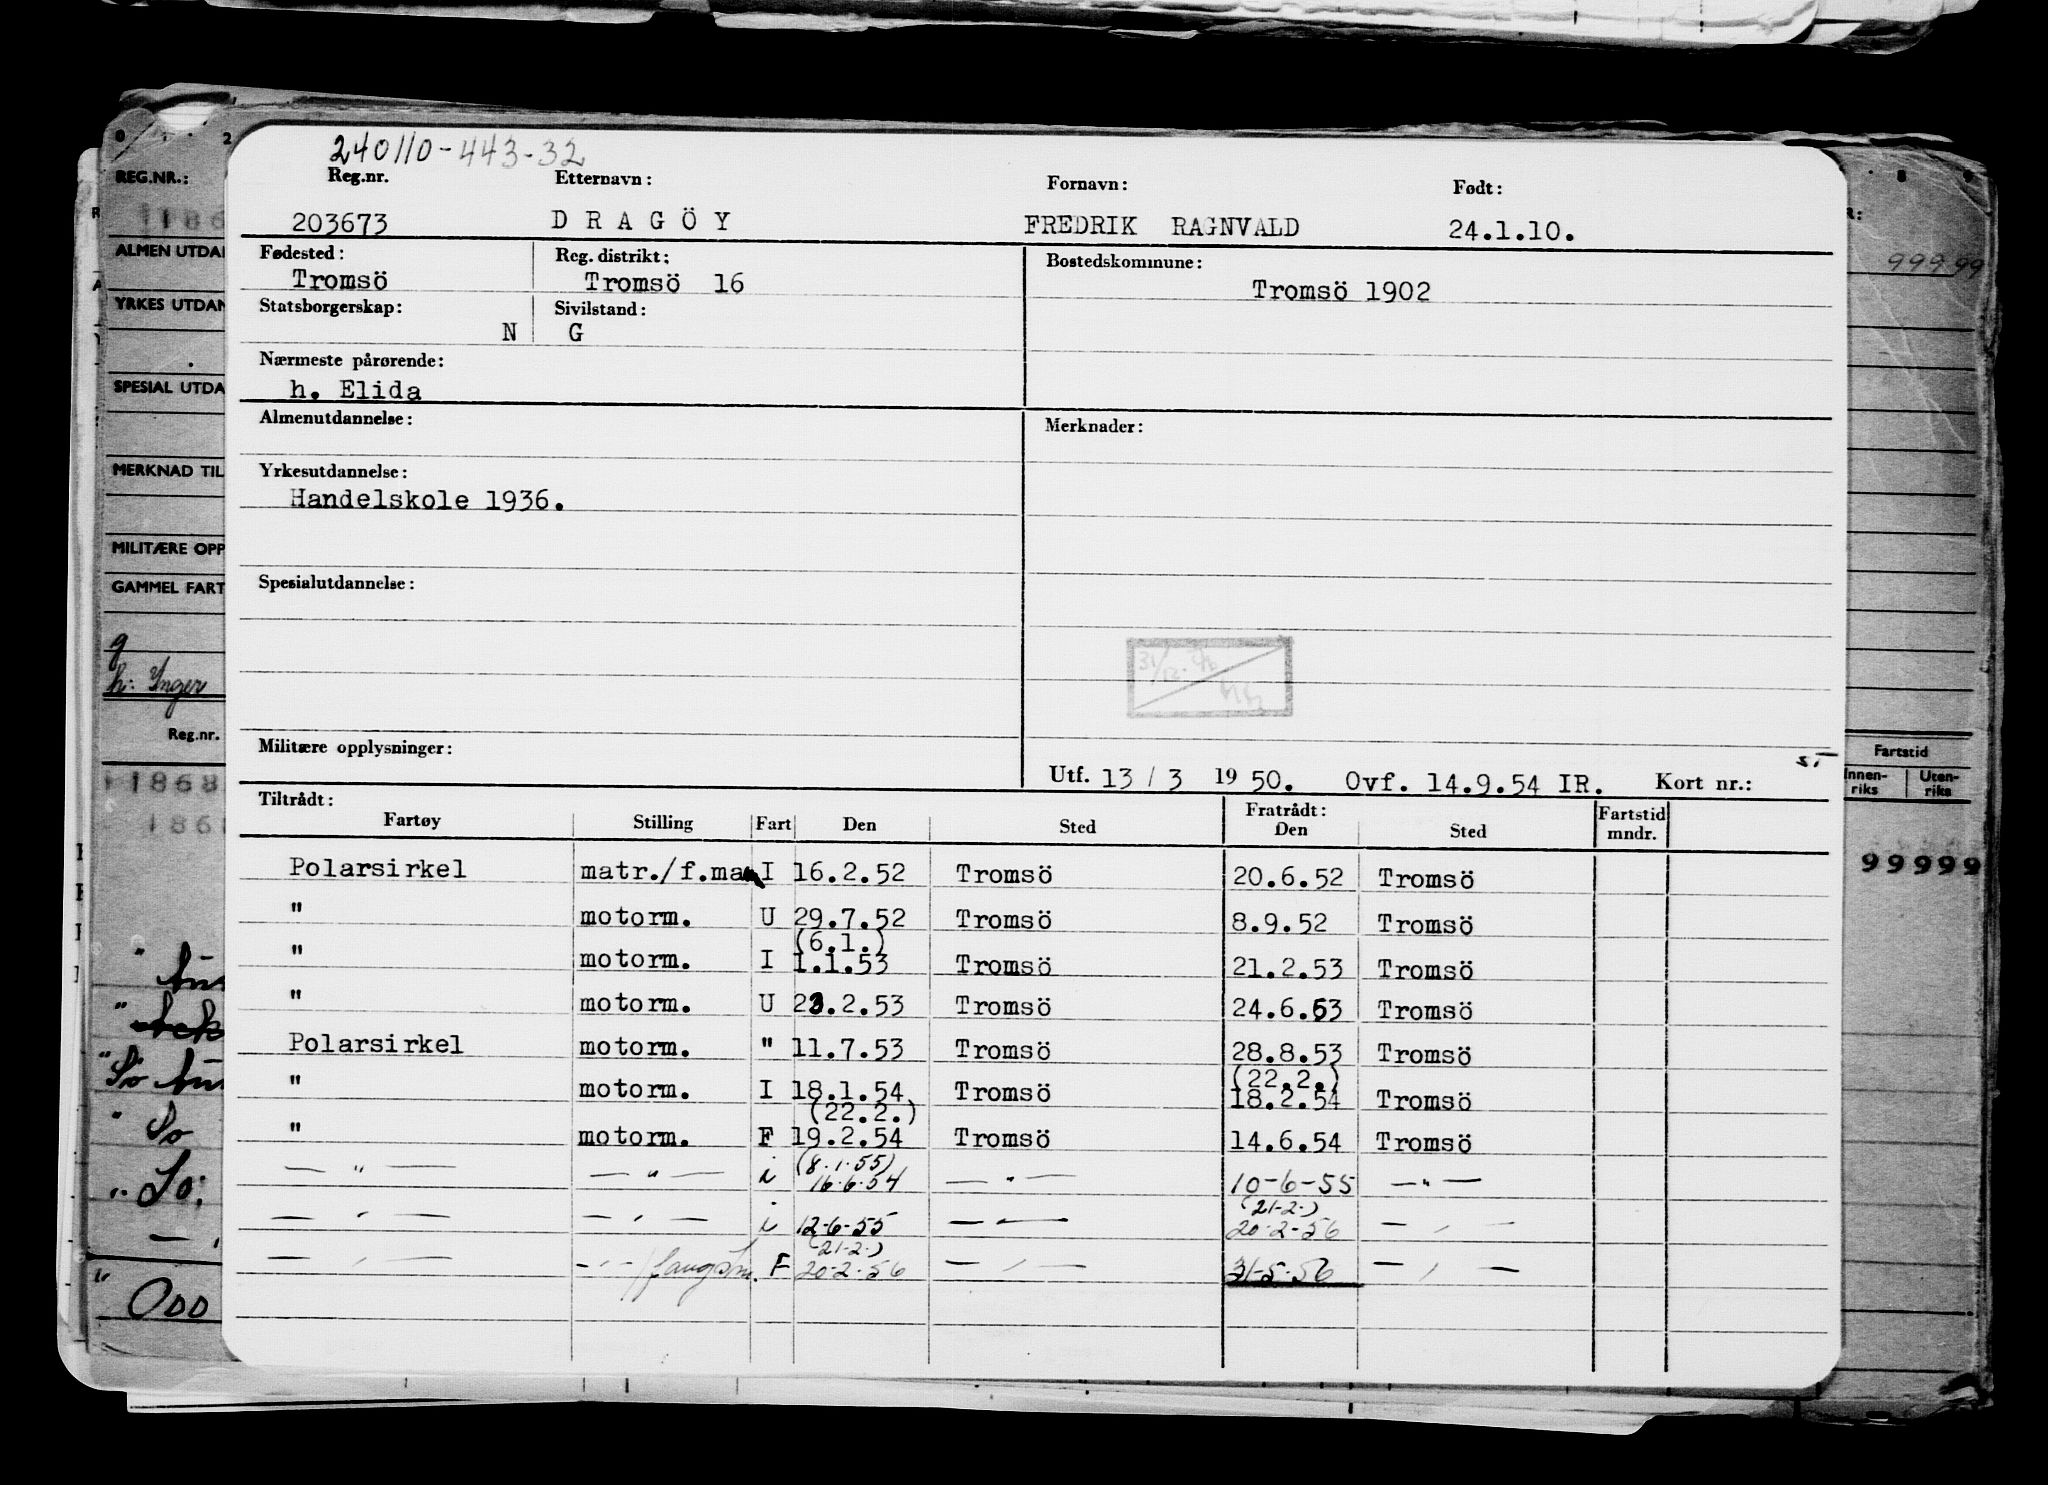 240110-443-32
Reg.nr. Etternavn: Fornavn: Født:
203673 DRAGÖY FREDRIK RAGNVALD 24.1.10.
Fødested: Reg. distrikt: Bostedskommune:
Tromsö Tromsö 16 Tromsö 1902
Statsborgerskap: Sivilstand:
N G
Nærmeste pårørende:
h. Elida
Almenutdannelse: Merknader:
Yrkesutdannelse:
Handelskole 1936.
Spesialutdannelse:
Militære opplysninger:
Utf. 13/3 1950. Ovf. 14.9.54 IR. Kort nr.:
Tiltrådt: Fratrådt: Fartstid
Fartøy Stilling Fart Den Sted Den Sted mndr.
Polarsirkel matr./f.man I 16.2.52 Tromsö 20.6.52 Tromsö
" motorm. U 29.7.52 Tromsö 8.9.52 Tromsö
(6.1.)
" motorm. I 1.1.53 Tromsö 21.2.53 Tromsö
" motorm. U 23.2.53 Tromsö 24.6.53 Tromsö
Polarsirkel motorm. " 11.7.53 Tromsö 28.8.53 Tromsö
(22.2.)
" motorm. I 18.1.54 Tromsö 18.2.54 Tromsö
(22.2.)
" motorm. F 19.2.54 Tromsö 14.6.54 Tromsö
(8.1.55)
— " — — " — i 16.6.54 — " — 10-6-55 — " —
(21-2-)
— " — — " — i 12-6-55 — " — 20-2-56 — " —
(21-2-)
— " — — " — / fangstm. F 20-2-56 — " — 31-5-56 — " —
REG.NR.:
ALMEN UTDA
YRKES UTDAN
SPESIAL UTDA
MERKNAD TIL
MILITÆRE OPP
GAMMEL FART
g
h: Inger
Reg.nr.
1868
186
" So
" So:
ODD
99999
Fartstid
Innen-riks Uten-riks
99999